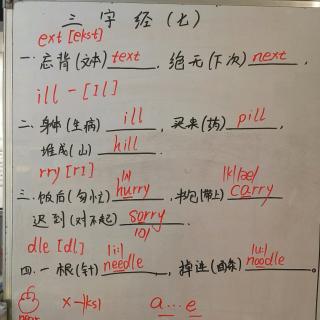 三字经(七)
ext [ekst]
一.忘背(文本) text, 绝无(下次) next,
ill - [Il]
二.身体(生病) ill, 买来(药) pill,
堆成(山) hill.
rry [rI]
|ʌ| |k||æ|
三.饭后(匆忙) hurry, 书包(带上) carry
迟到(对不起) sorry
|ɒ|
dle [dl]
|i:| |u:|
四.一根(针) needle, 掉进(面条) noodle。
x-|ks| a...e